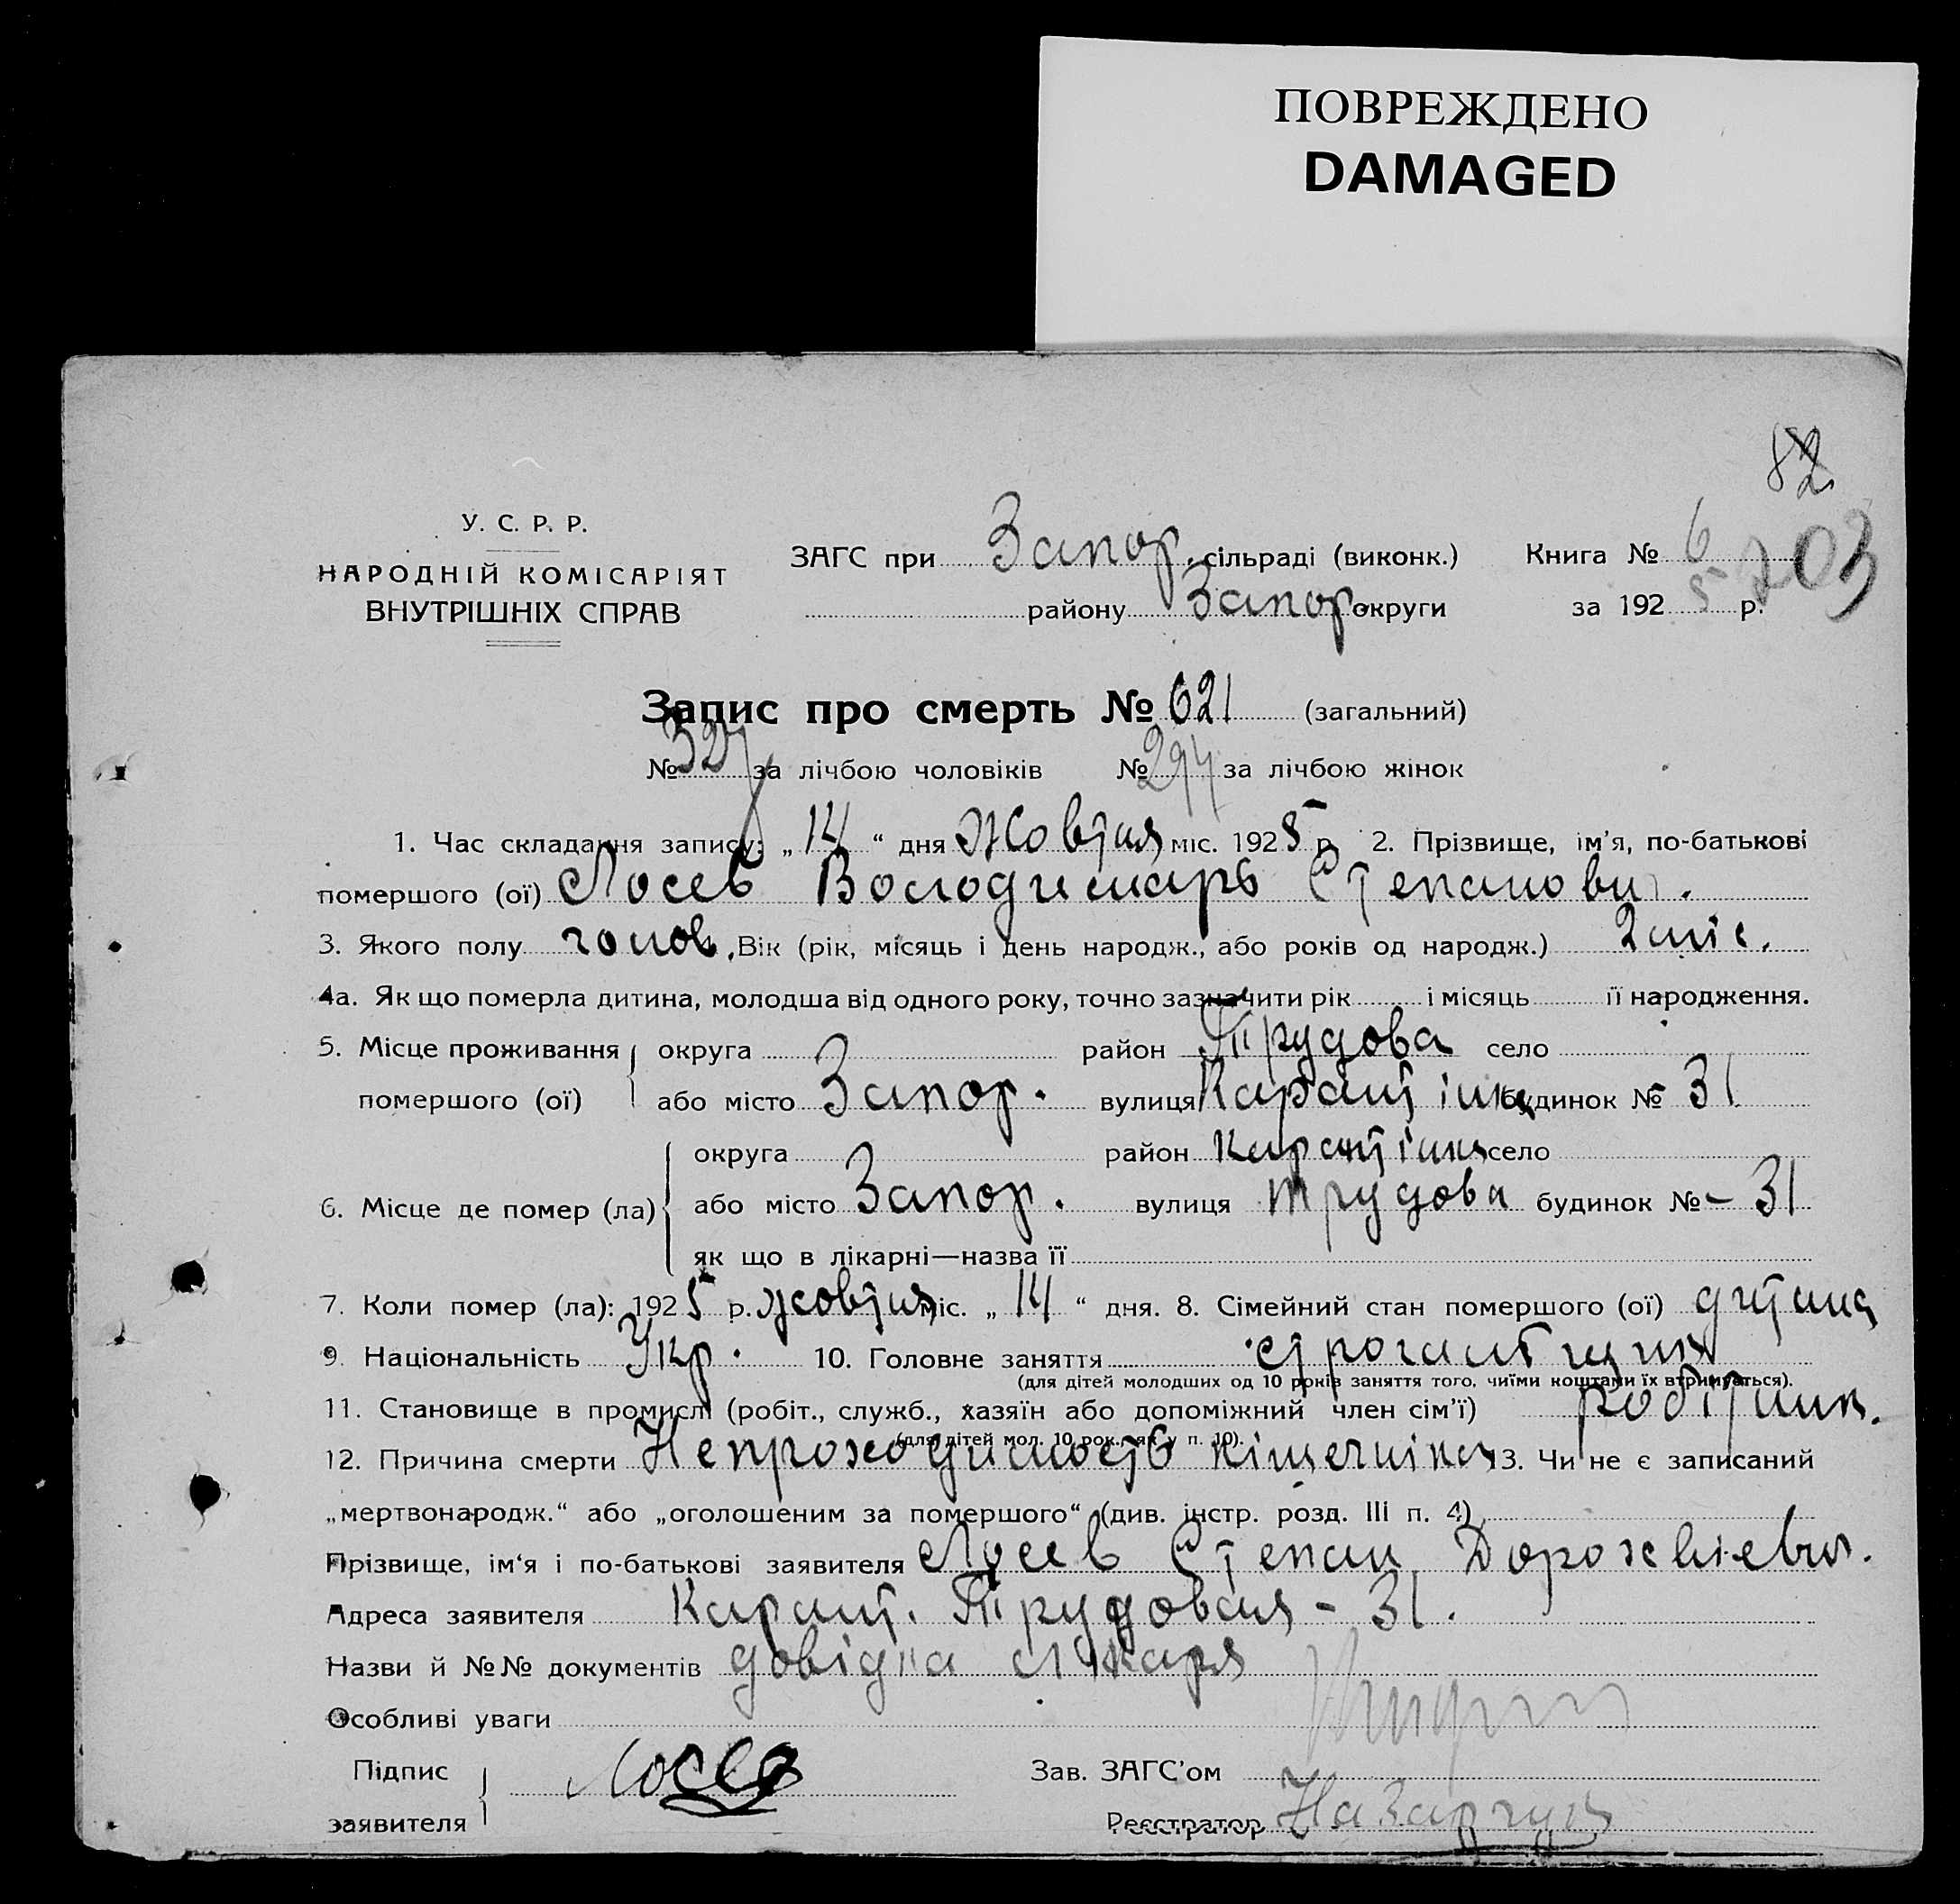 ПОВРЕЖДЕНО
DAMAGED
82
У. С. Р. Р.
НАРОДНІЙ КОМІСАРІЯТ
ВНУТРІШНІХ СПРАВ
ЗАГС при Запор. сільраді (виконк.) Книга № 6
203
району Запор. округи за 192 5 р.
Запис про смерть № 621 (загальний)
№ 327 за лічбою чоловіків № 294 за лічбою жінок
1. Час складання запису: „ 14 “ дня Жовтня міс. 192 5 р. 2. Прізвище, ім’я, по-батькові
помершого (ої) Лосев Володимарь Степанович.
3. Якого полу чолов. Вік (рік, місяць і день народж., або років од народж.) 2 міс.
4а. Як що померла дитина, молодша від одного року, точно зазначити рік і місяць її народження.
5. Місце проживання округа район Трудова село
помершого (ої) або місто Запор. вулиця Карантіна будинок № 31
округа район Карантіна село
6. Місце де помер (ла) або місто Запор. вулиця Трудова будинок № – 31
як що в лікарні—назва її
7. Коли помер (ла): 192 5 р. жовтня міс. „ 14 “ дня. 8. Сімейний стан помершого (ої) дитина
9. Національність Укр. 10. Головне заняття
(для дітей молодших од 10 років заняття того, чиїми коштами їх втримується).
11. Становище в промислі (робіт., служб., хазяїн або допоміжний член сім’ї) робітник.
(для дітей мол. 10 рок., як у п. 10).
12. Причина смерти Непроходимость кішечніка 13. Чи не є записаний
„мертвонародж.“ або „оголошеним за помершого“ (див. інстр. розд. III п. 4)
Прізвище, ім‘я і по-батькові заявителя Лосев Степан
Адреса заявителя Карант. Трудовая – 31.
Назви й №№ документів довідка лікаря
Особливі уваги
Підпис Лосев Зав. ЗАГС’ом
заявителя Реєстратор